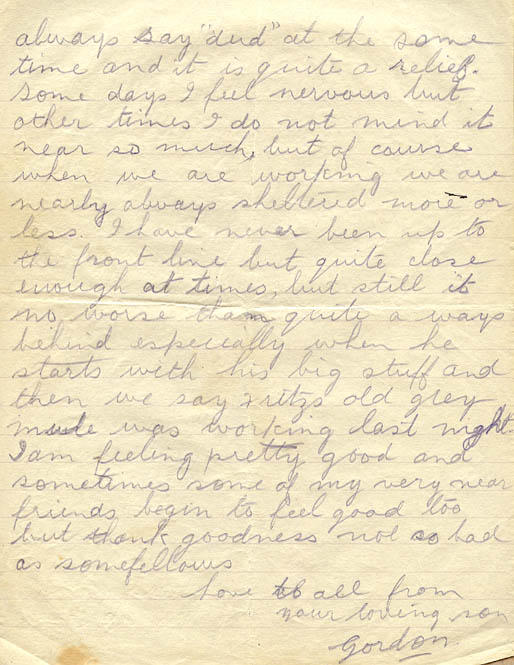 always say "dud" at the same
time and it is quite a relief.
Some days I feel nervous but
other times I do not mind it
near so much, but of course
when we are working we are
nearly always sheltered more or
less. I have never been up to
the front line but quite close
enough at times, but still it
no worse than quite a ways
behind especially when he
starts with his big stuff and
then we say Fritzs old grey
mule was working last night.
I am feeling pretty good and
sometimes some of my very near
friends begin to feel good too
but thank goodness not so bad
as somefellows
Love to all from
your loving son
Gordon